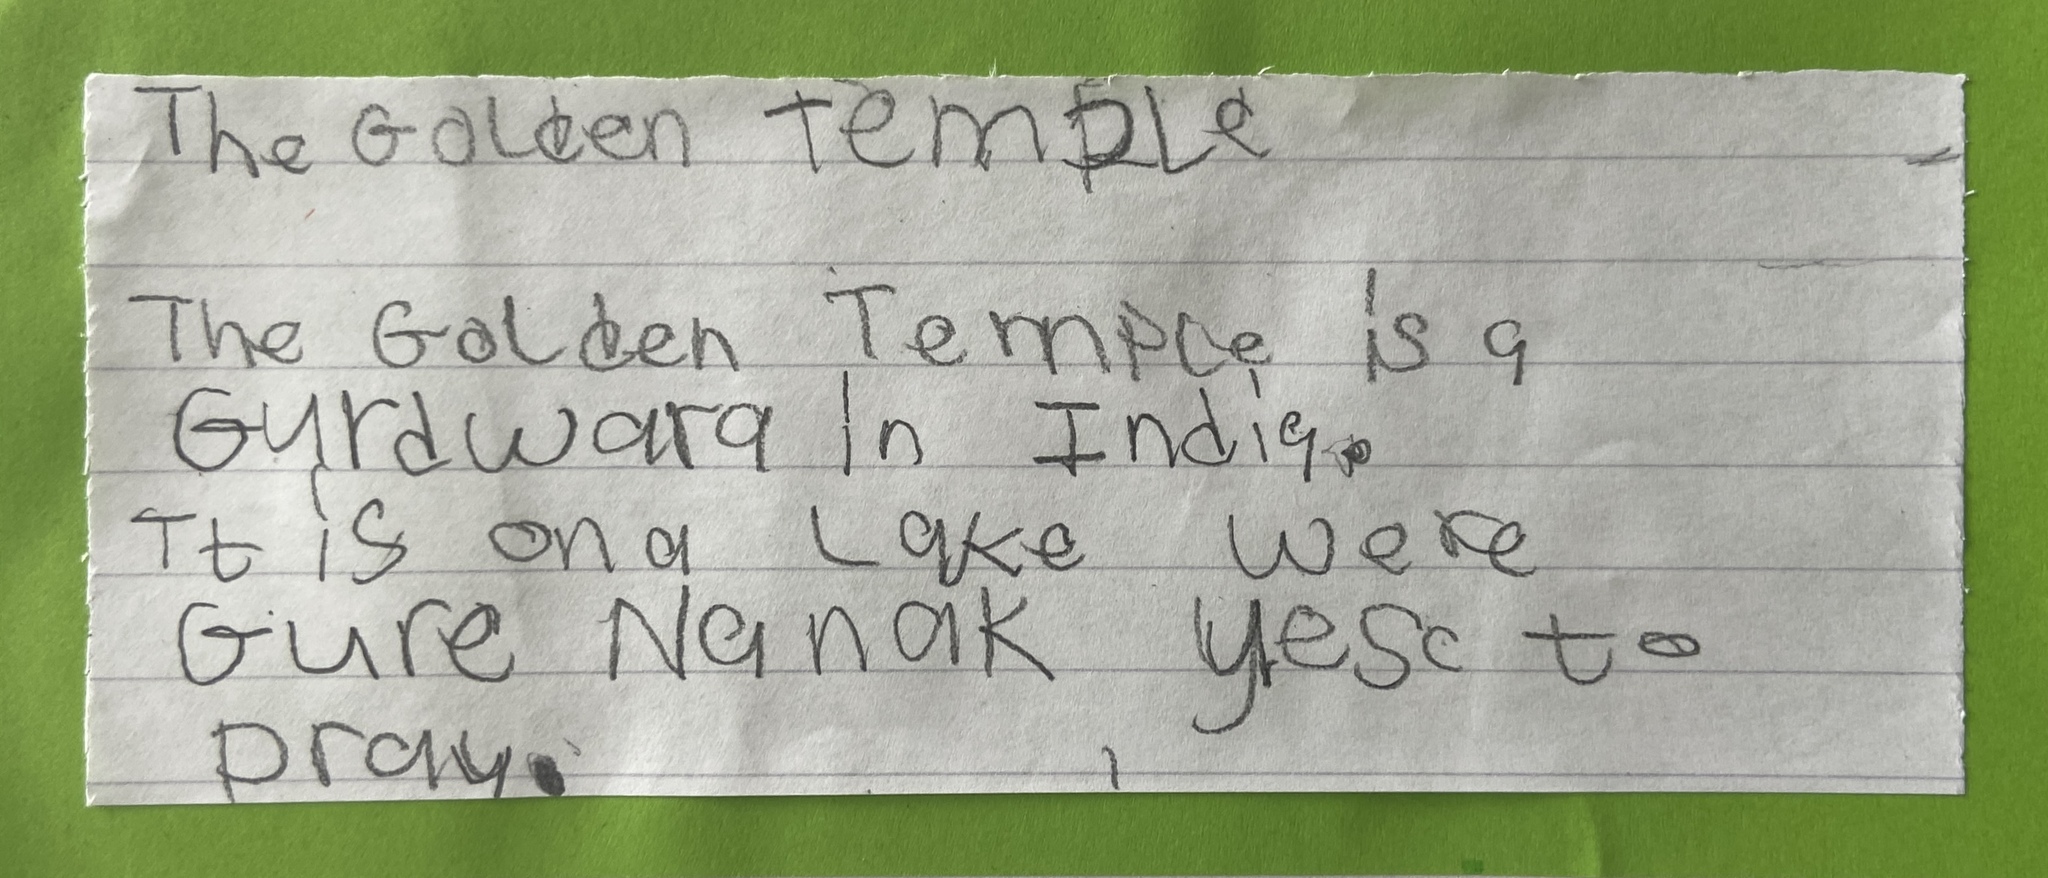 The Golden Temple
The Golden Temple is a
Gurdwara in India.
It is on a Lake were
Gure Nanak yesc to
pray.